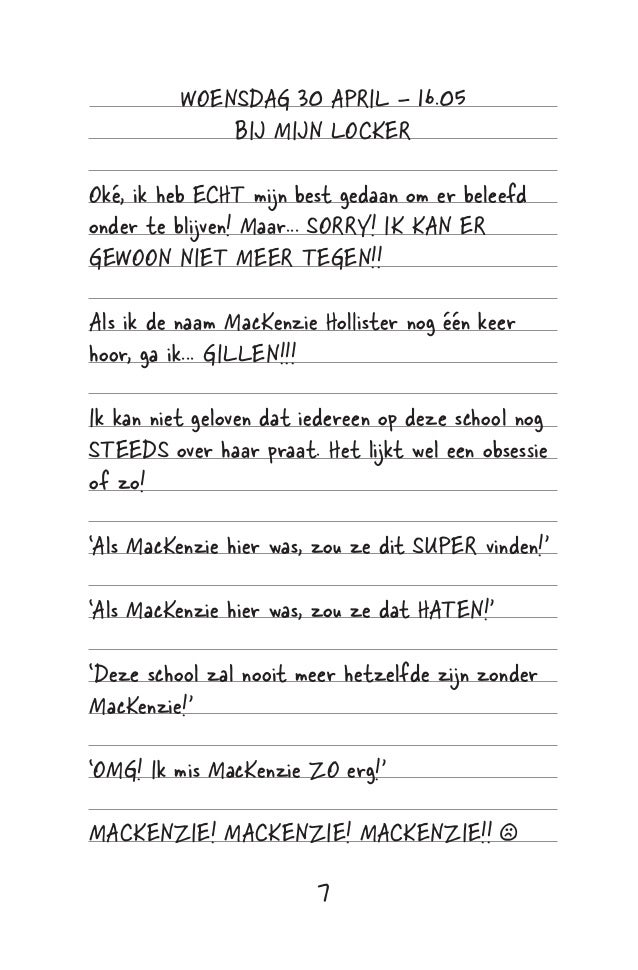 WOENSDAG 30 APRIL – 16.05
BIJ MIJN LOCKER
Oké, ik heb ECHT mijn best gedaan om er beleefd
onder te blijven! Maar... SORRY! IK KAN ER
GEWOON NIET MEER TEGEN!!
Als ik de naam MacKenzie Hollister nog één keer
hoor, ga ik... GILLEN!!!
Ik kan niet geloven dat iedereen op deze school nog
STEEDS over haar praat. Het lijkt wel een obsessie
of zo!
‘Als MacKenzie hier was, zou ze dit SUPER vinden!’
‘Als MacKenzie hier was, zou ze dat HATEN!’
‘Deze school zal nooit meer hetzelfde zijn zonder
MacKenzie!’
‘OMG! Ik mis MacKenzie ZO erg!’
MACKENZIE! MACKENZIE! MACKENZIE!! ☹
7